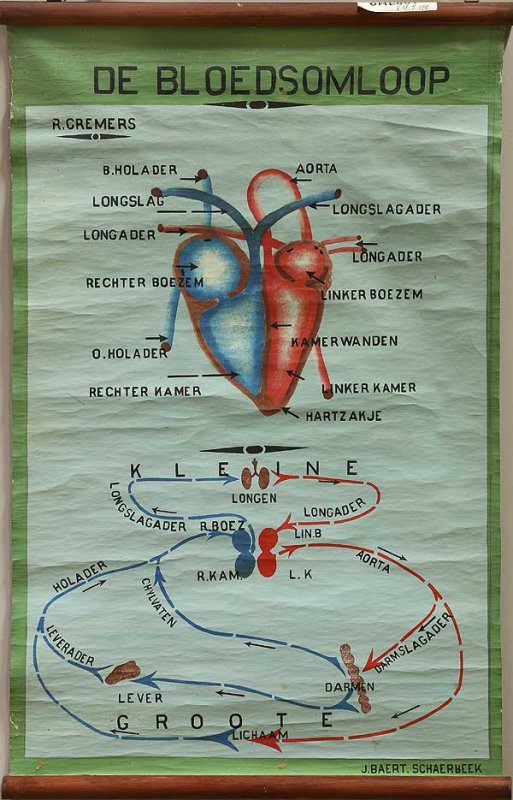 DE BLOEDSOMLOOP
R.CREMERS
B.HOLADER
AORTA
LONGSLAG
LONGSLAGADER
LONGADER
LONGADER
RECHTER BOEZEM
LINKER BOEZEM
KAMERWANDEN
O.HOLADER
RECHTER KAMER
LINKER KAMER
HARTZAKJE
KLEINE
LONGEN
LONGSLAGADER
LONGADER
R.BOEZ
LIN.B
R.KAM.
L.K
AORTA
HOLADER
CHYLVATEN
LEVERADER
DARMSLAGADER
DARMEN
LEVER
GROOTE
LICHAAM
J.BAERT. SCHAERBEEK